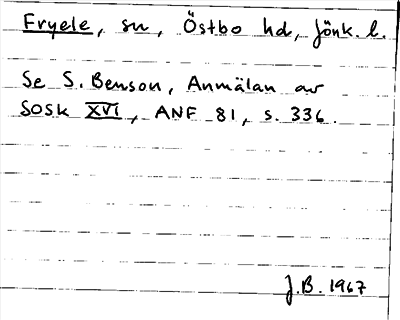 Fryele, sn, Östbo hd, Jönk. l.
Se S. Benson, Anmälan av
SOSk XVI, ANF 81, s. 336.
J.B. 1967